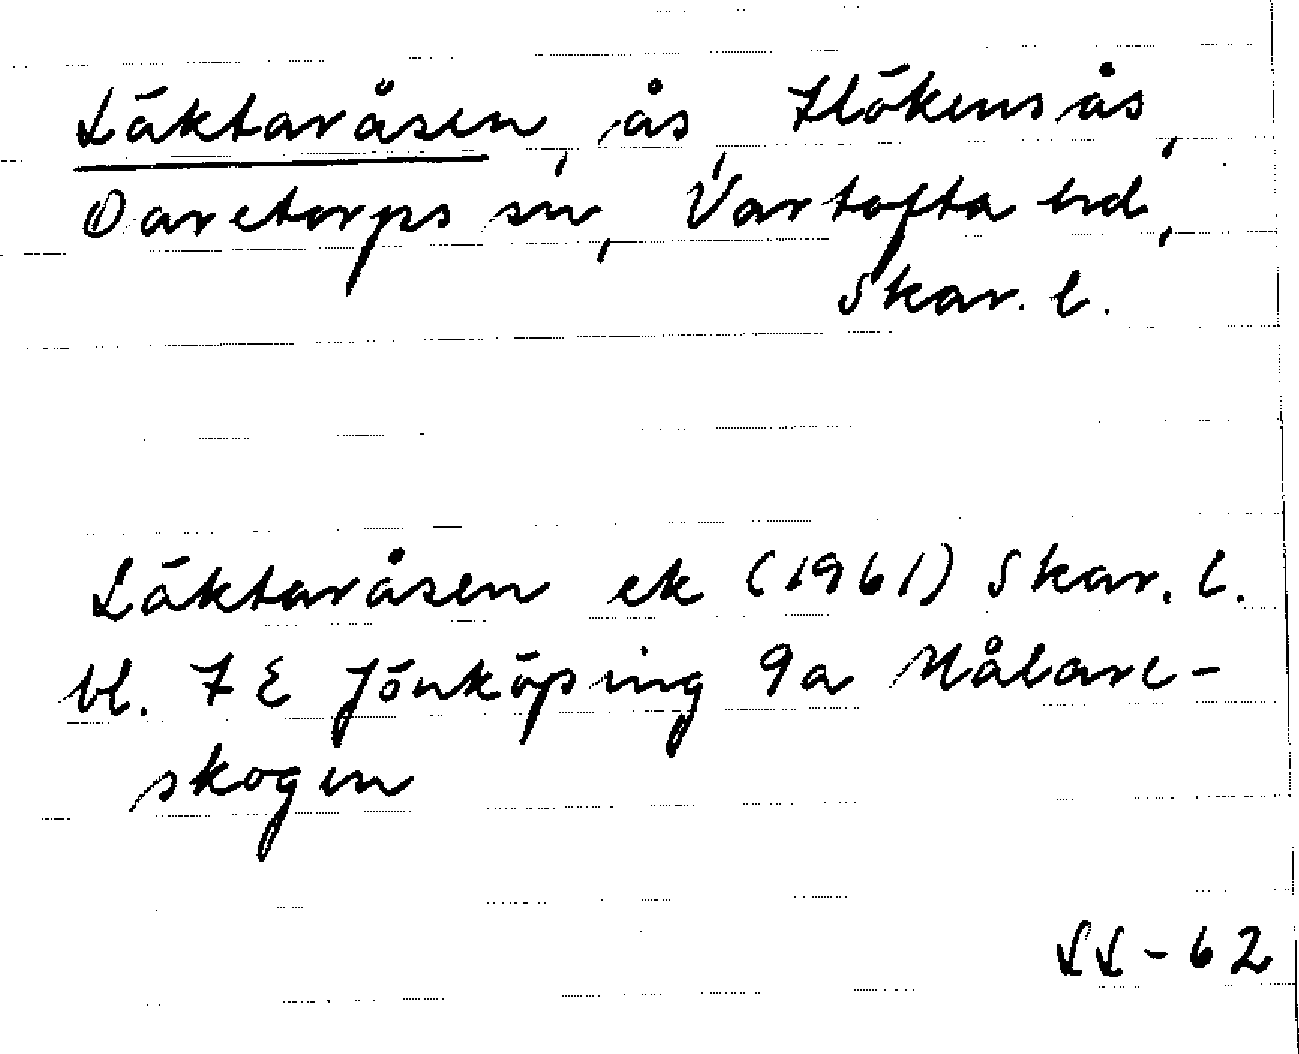 Läktaråsen, ås, Hökensås,
Daretorps sn, Vartofta hd,
Skar. l.
Läktaråsen ek (1961) Skar. l.
bl. 7 E Jönköping 9a Målare-
skogen
LL-62